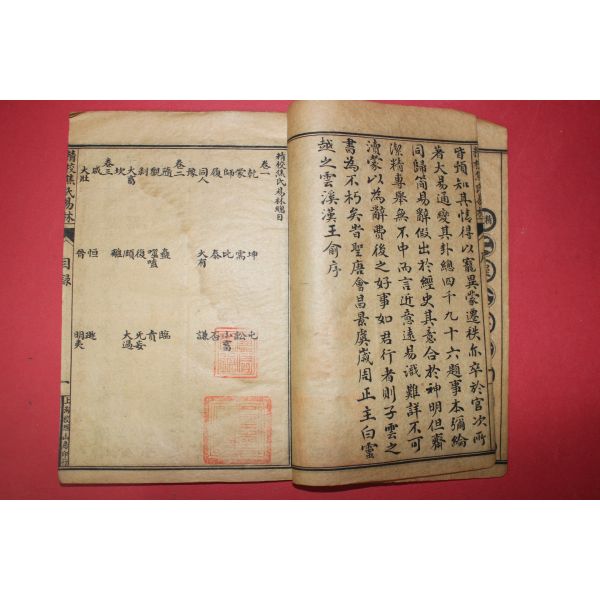 皆預知其情得以寵異蒙遷秩亦卒於官次所
著大易通變其卦總四千九十六題事本彌綸
同歸簡易辭假出於經史其意合於神明但齋
潔精專舉無不中而言近意遠易識難詳不可
瀆蒙以為辭費後之好事如君行者則子雲之
書為不朽矣旹聖唐會昌景虞歲周正主白靈
越之雲溪漢王俞序
精校焦氏易林總目
卷一
乾 坤 屯
蒙 需 訟
師 比 小畜
履 泰 否
同人 大有 謙
豫
卷二
隨 蠱 臨
觀 噬嗑 賁
剝 復 无妄
大畜 頤 大過
坎 離
卷三
咸 恒 遯
大壯 晉 明夷
精校焦氏易林 目錄 一 上海